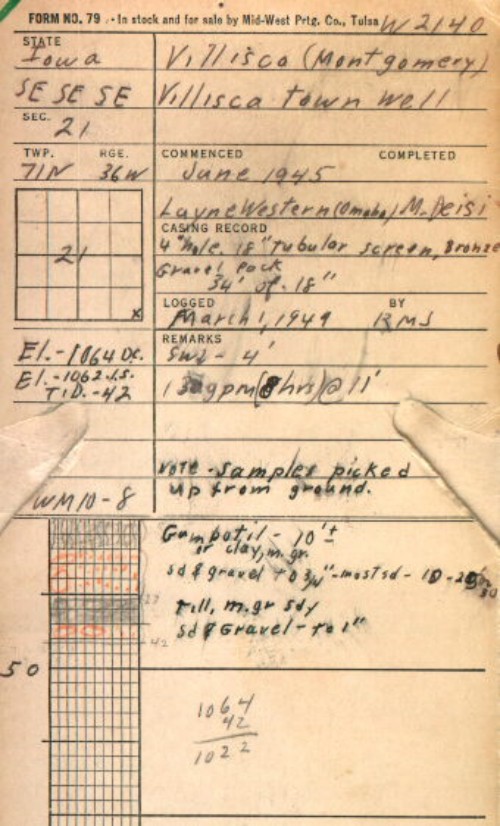 FORM NO. 79 - In stock and for sale by Mid-West Prtg. Co., Tulsa W2140
STATE
Iowa
Villisca (Montgomery)
SE SE SE
Villisca town well
SEC.
21
TWP. RGE.
71N 36W
COMMENCED COMPLETED
June 1945
Layne Western (Omaha) M.
CASING RECORD
4" hole, 18" tubular screen, Bronze
Gravel pack
34' of 18"
21
x
LOGGED BY
March 1, 1949 RMS
REMARKS
El.-1064 DK.
SWL - 4'
El.-1062 I.S.
T.D.-42
gpm (8 hrs) @ 11'
Note - samples picked
up from ground.
WM10-8
Gumbotil - 10'±
or clay, m. gr.
sd & gravel to 3/4" - most sd - 10-
27
till, m. gr sdy
sd & Gravel - to 1"
42
50
1064
42
1022